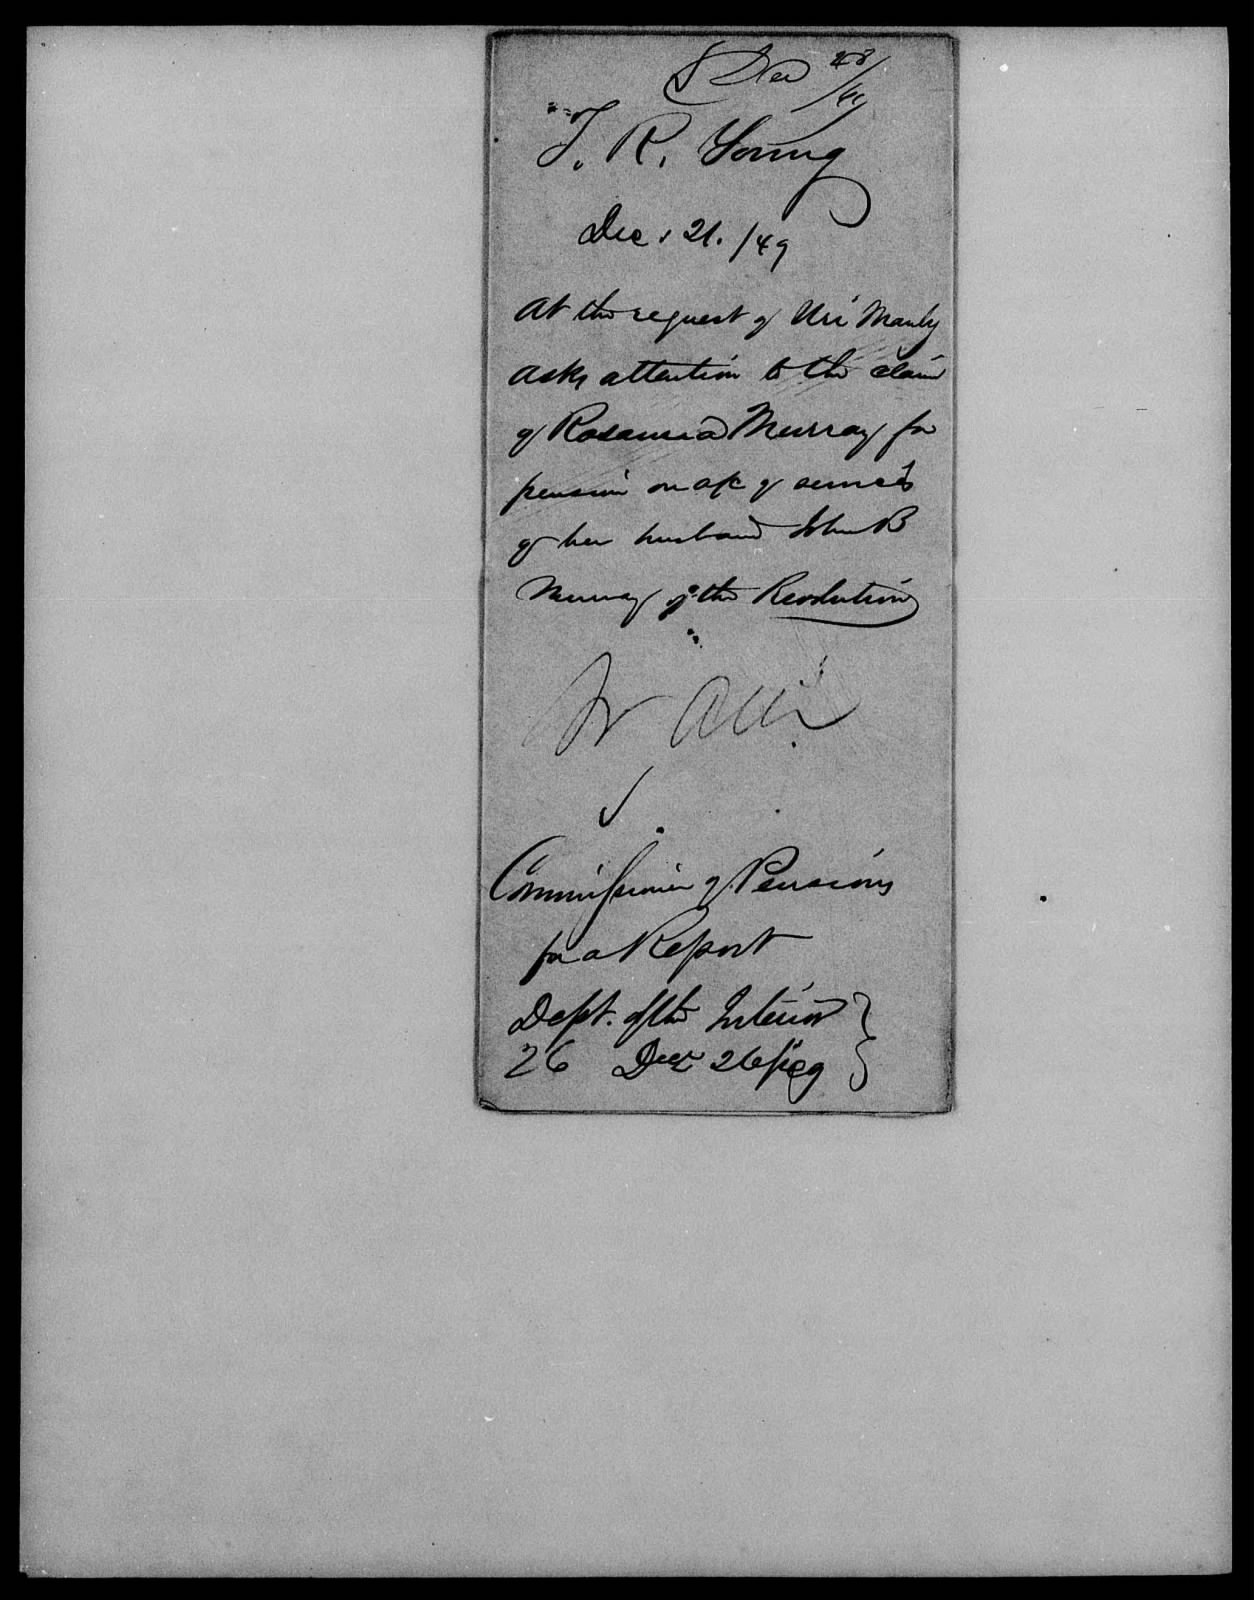 Dec 28/49
T. R. Young
Dec. 21. /49
At the request of Uri Manly
asks attention to the claim
of Rosanna Murray for
pension on a/c of services
of her husband John B
Murray of the Revolution
Commissioner of Pensions
for a Report
Dept. of the Interior
26 Decr 26/49